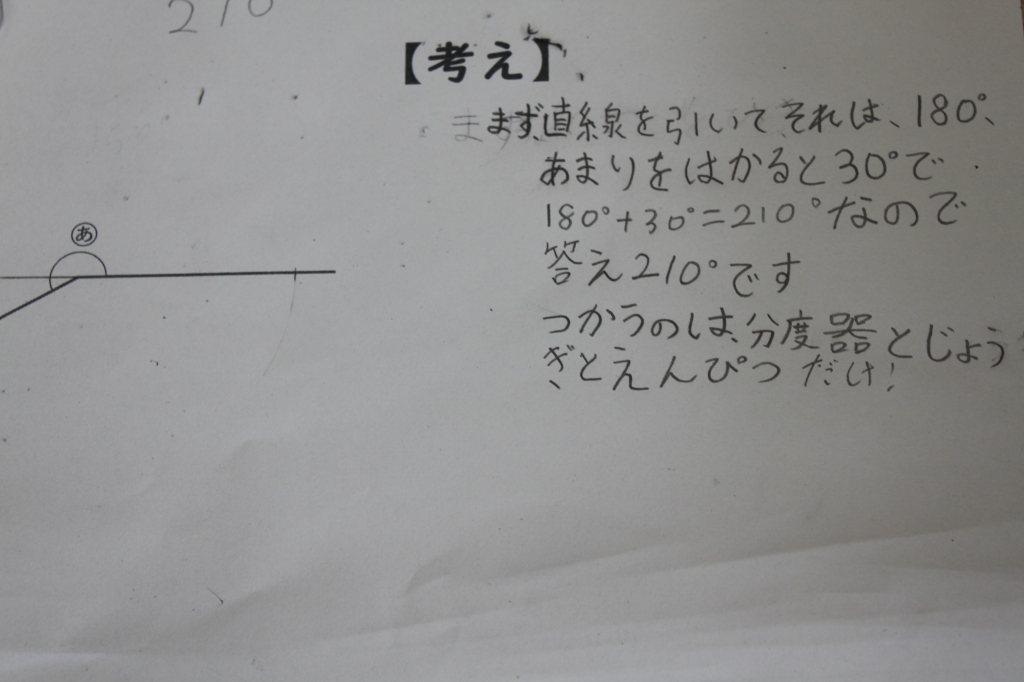 210
【考え】
まず、直線を引いてそれは、180°、
あまりをはかると30°で
180°+30°=210°なので
答え210°です
つかうのは、分度器とじょう
ぎとえんぴつだけ!
あ